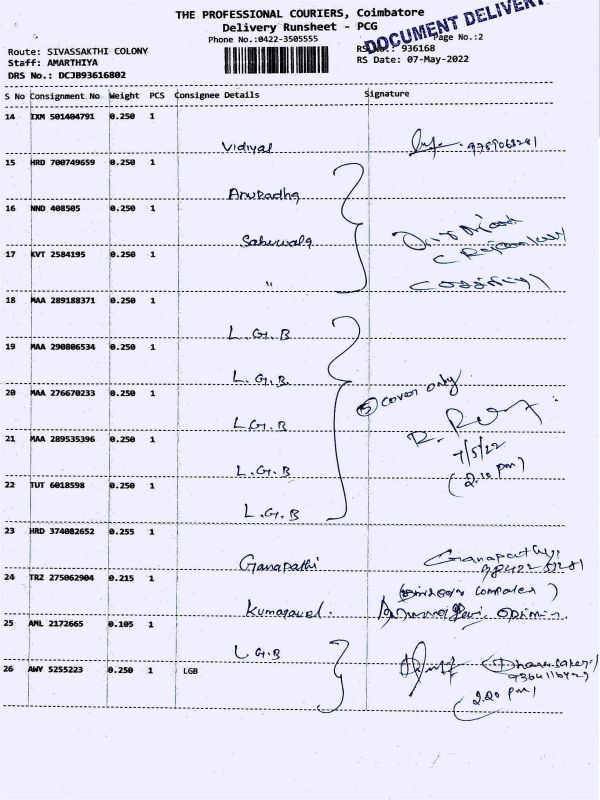 THE PROFESSIONAL COURIERS, Coimbatore
Delivery Runsheet - PCG
DOCUMENT DELIVERY
Phone No.:0422-3505555
Page No.:2
Route: SIVASSAKTHI COLONY
936168
Staff: AMARTHIYA
RS Date: 07-May-2022
DRS No.: DCJB93616802
S No Consignment No Weight PCS Consignee Details Signature
14 IXM 501404791 0.250 1
Vidiyal
15 HRD 700749659 0.250 1
Anuradha
16 NND 408505 0.250 1
Sahuwala
17 KVT 2584195 0.250 1
"
18 MAA 289188371 0.250 1
L.G.B
19 MAA 290806534 0.250 1
L.G.B.
20 MAA 276670233 0.250 1
⑤ cover only
L.G.B
21 MAA 289535396 0.250 1
7/5/22
L.G.B
(2.10 pm)
22 TUT 6018598 0.250 1
L.G.B
23 HRD 374082652 0.255 1
Ganapathi
24 TRZ 275062904 0.215 1
Kumaravel.
25 AML 2172665 0.105 1
L.G.B
26 AWY 5255223 0.250 1 LGB
2.20 pm